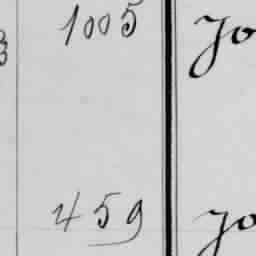 1005 Jo
459 Jo